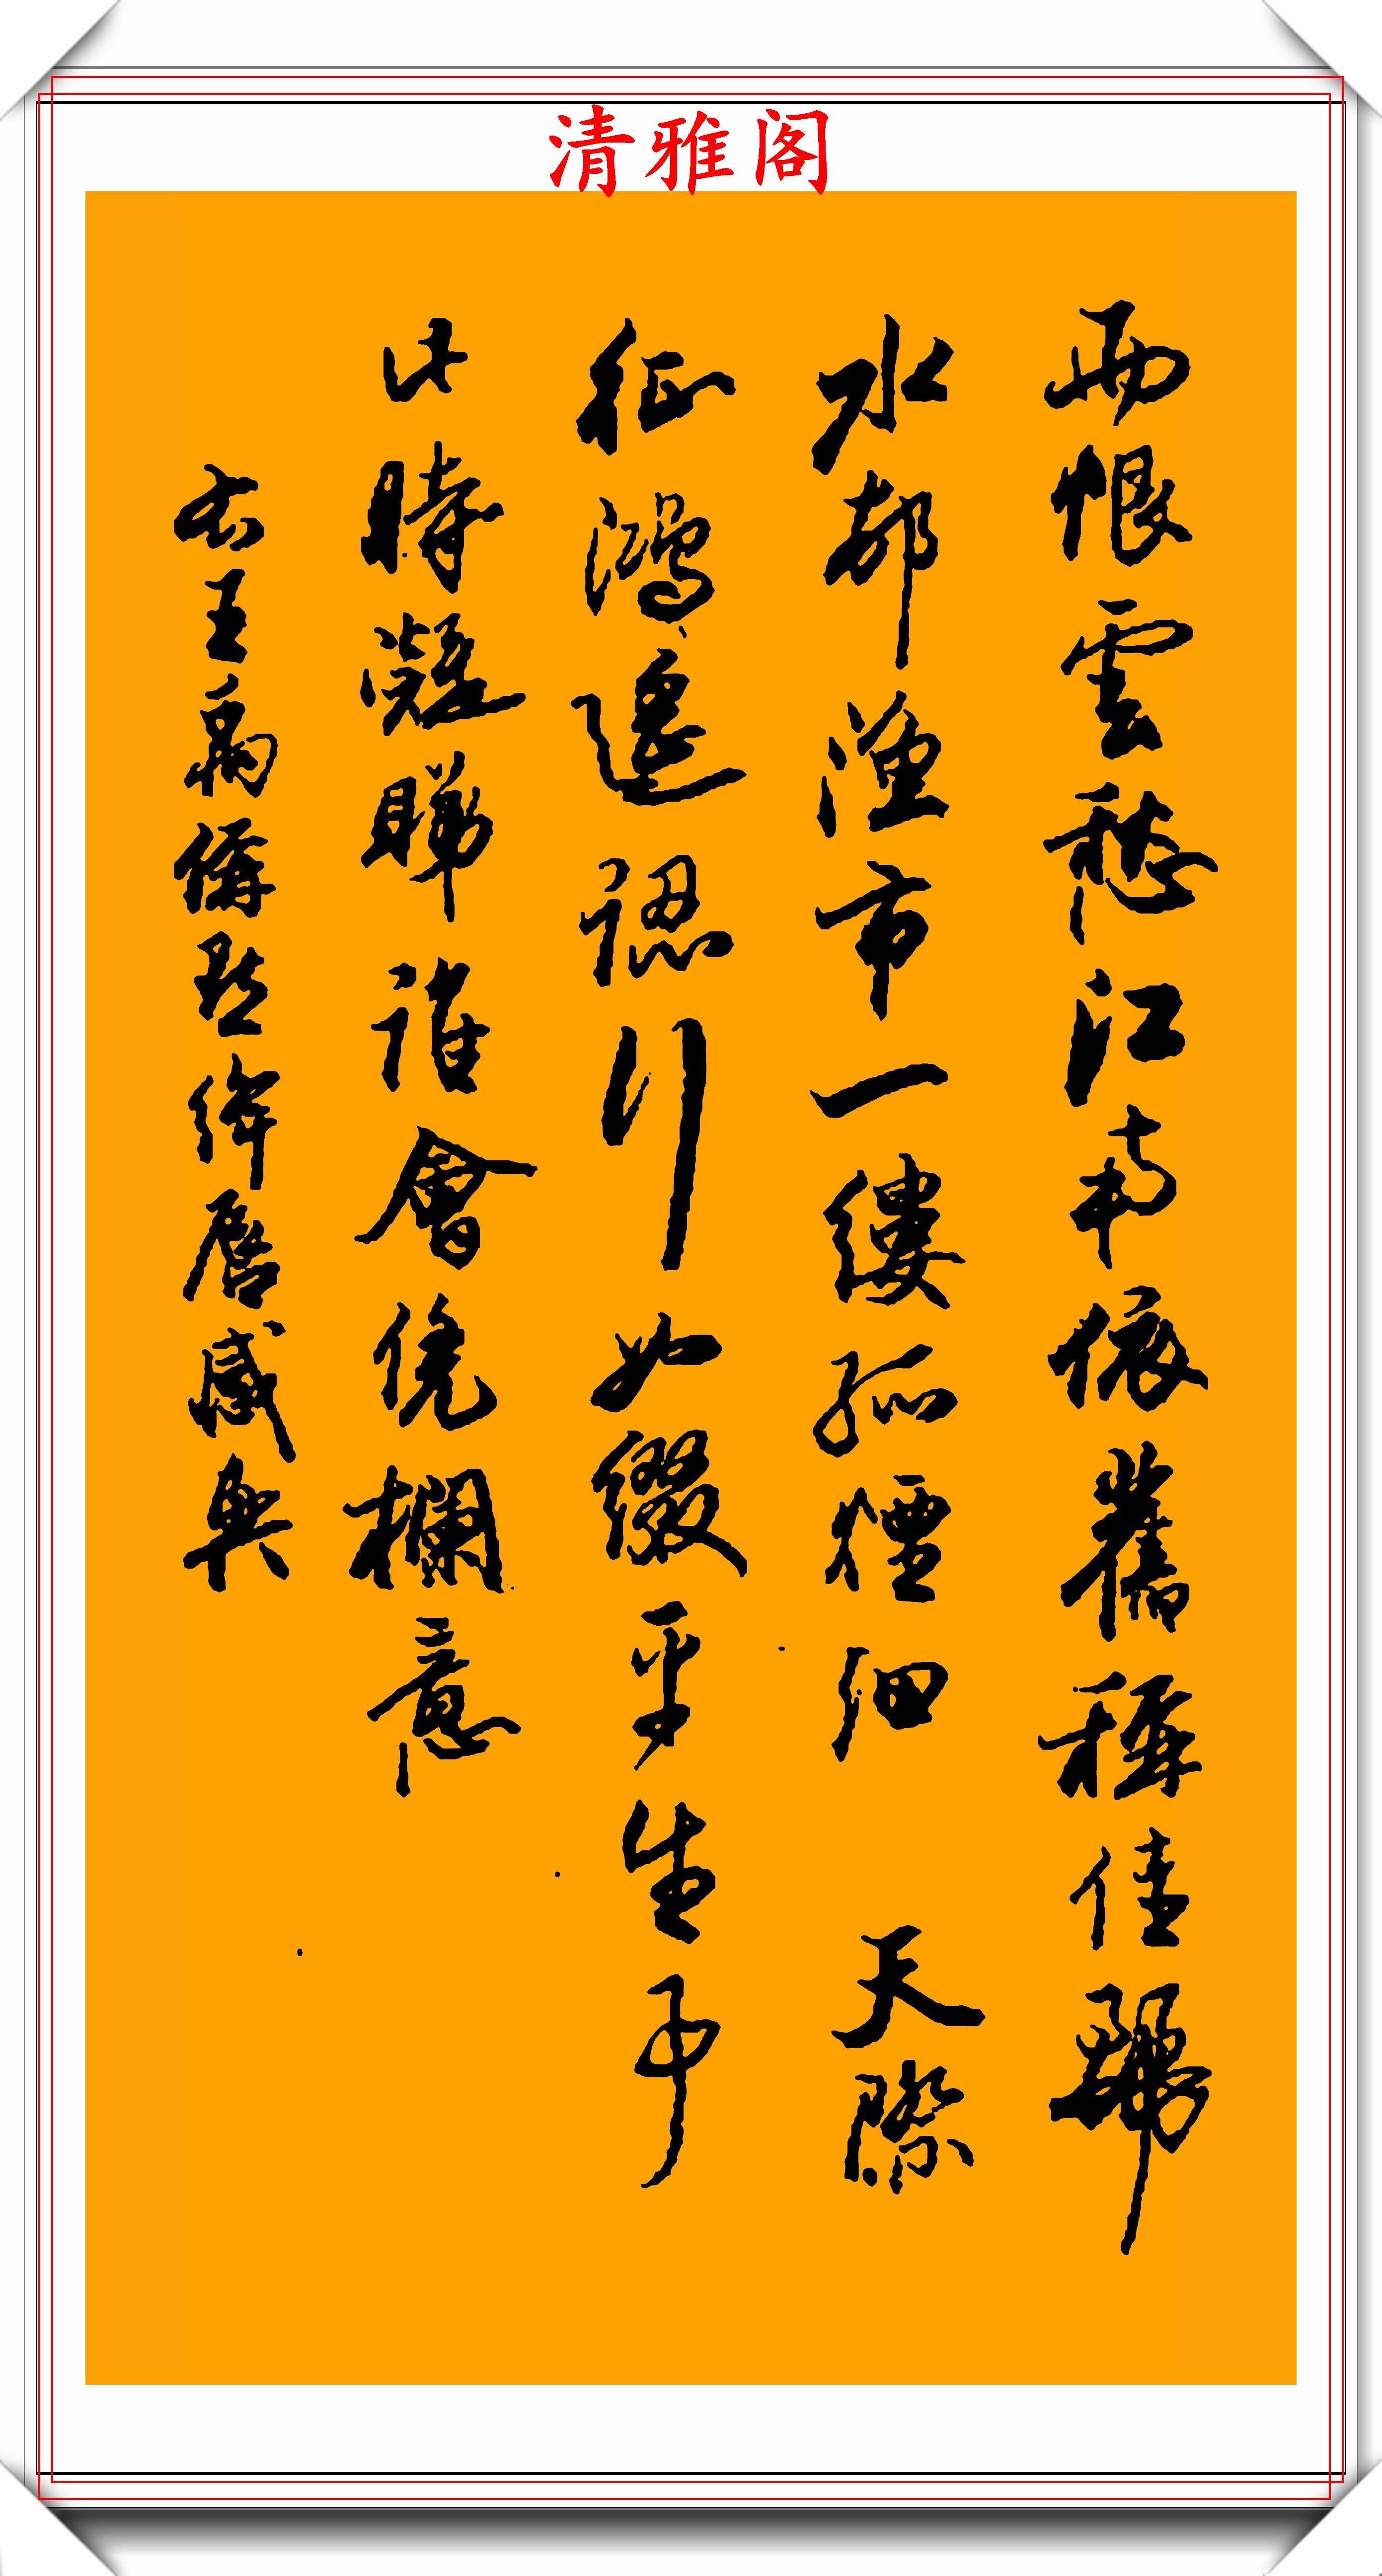 清雅阁
雨恨雲愁江南依舊稱佳麗
水邨漁市一縷孤煙細 天際
征鴻遙認行如綴平生事
此時凝睇誰會凭欄意
右王禹偁點絳唇感興